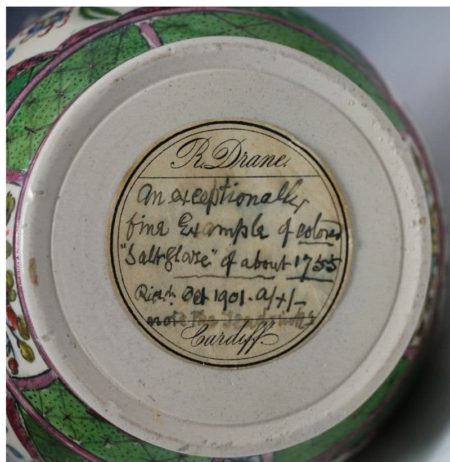 R. Drane.
An exceptionally
fine Example of colored
"Saltglaze" of about 1755
Oct 1901. a/+/-
note the
Cardiff